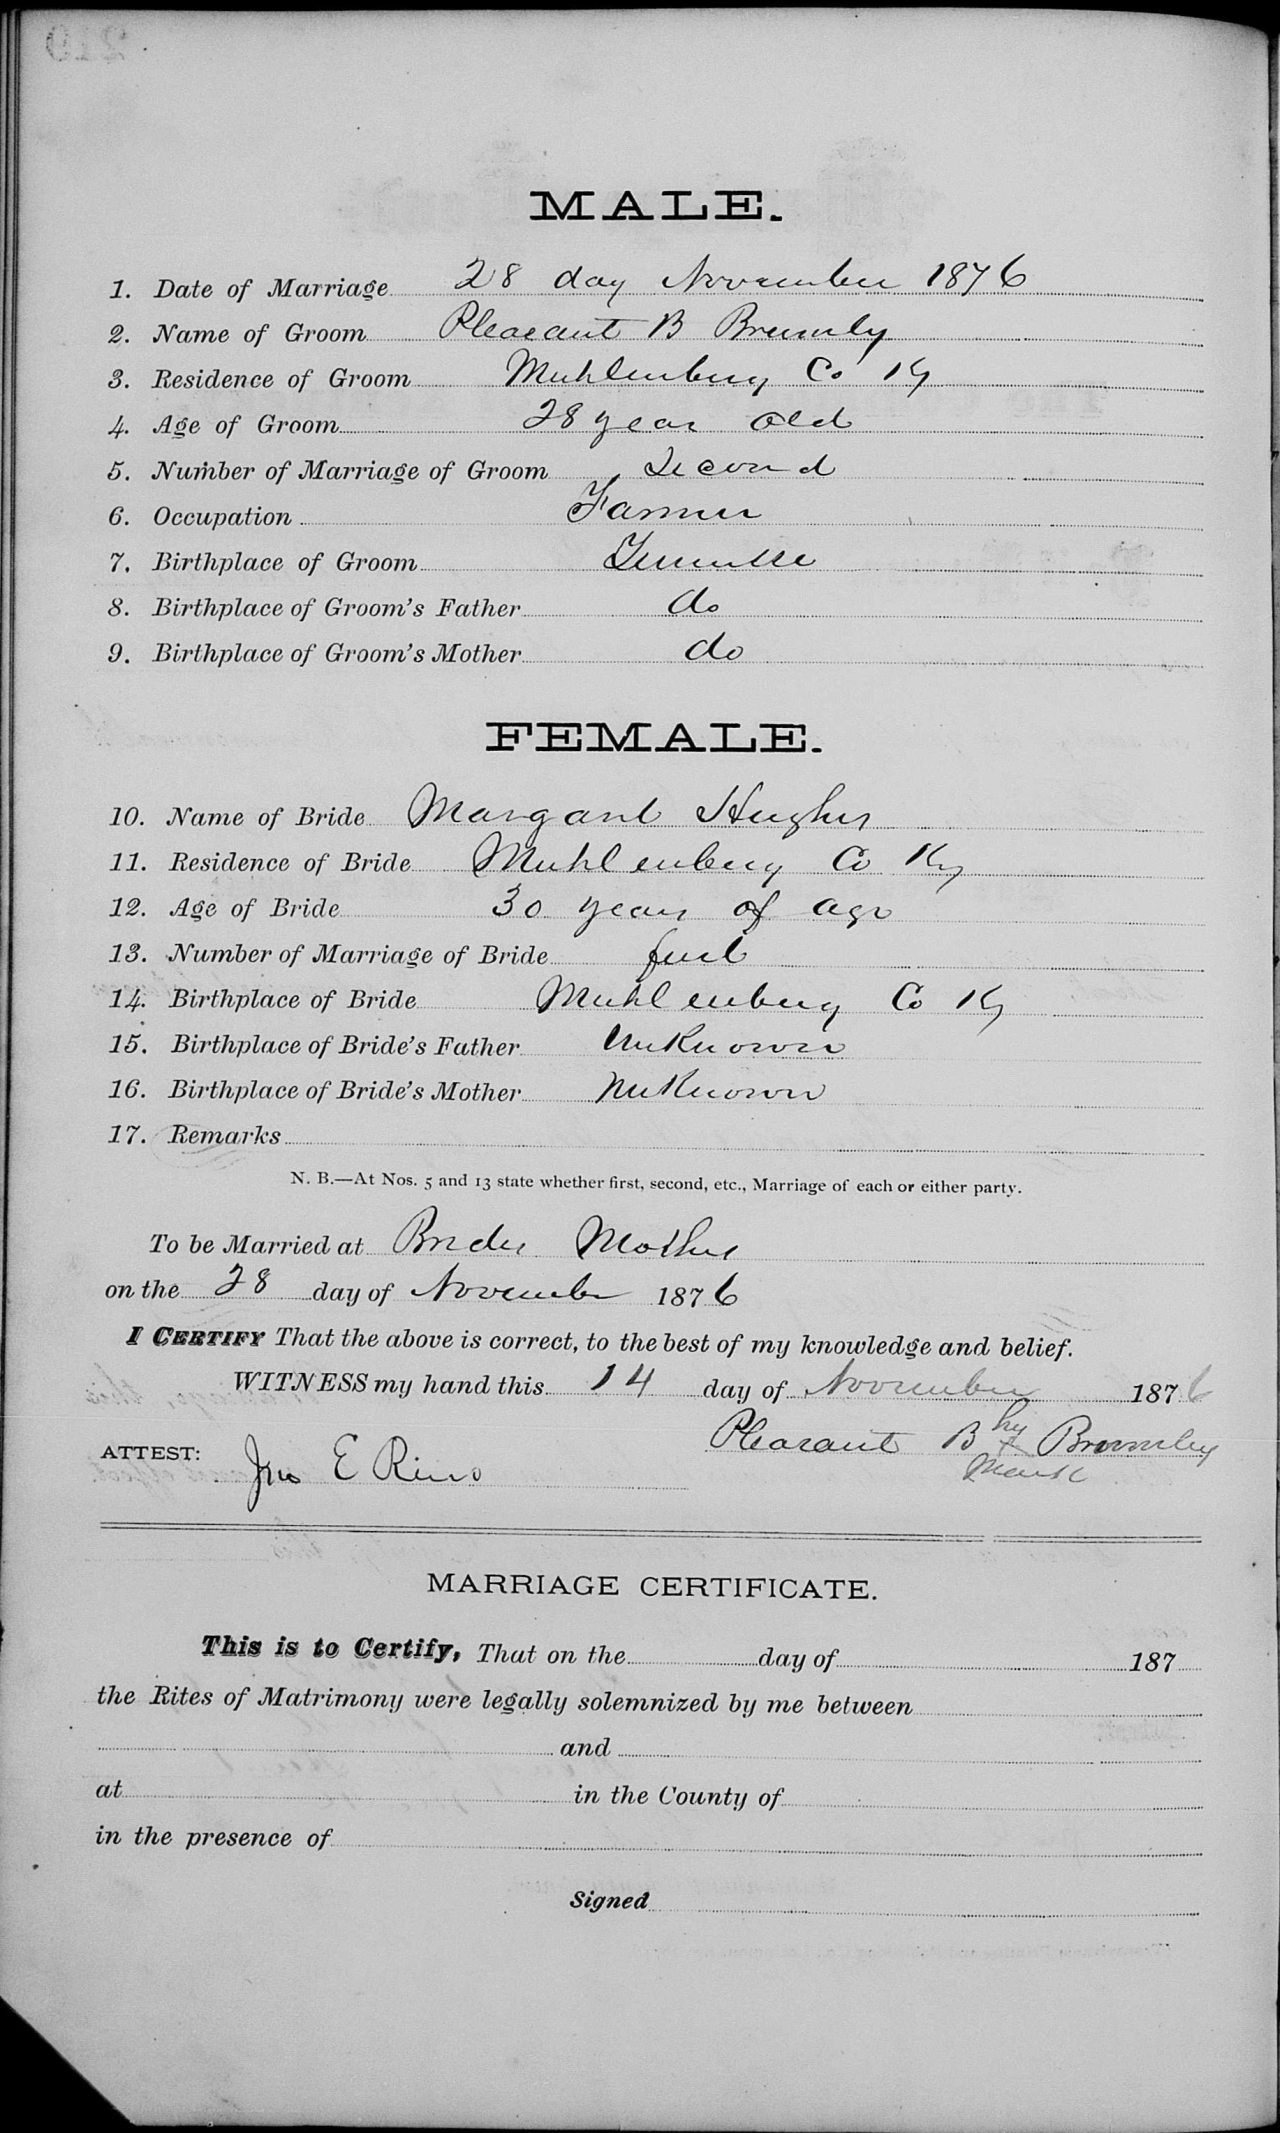 MALE.
1. Date of Marriage 28 day November 1876
2. Name of Groom Pleasant B Brumly
3. Residence of Groom Muhlenburg Co Ky
4. Age of Groom 28 year old
5. Number of Marriage of Groom Second
6. Occupation Farmer
7. Birthplace of Groom Tennessee
8. Birthplace of Groom's Father do
9. Birthplace of Groom's Mother do
FEMALE.
10. Name of Bride Margaret Hughes
11. Residence of Bride Muhlenburg Co Ky
12. Age of Bride 30 years of age
13. Number of Marriage of Bride first
14. Birthplace of Bride Muhlenburg Co Ky
15. Birthplace of Bride's Father Unknown
16. Birthplace of Bride's Mother Unknown
17. Remarks
N. B.—At Nos. 5 and 13 state whether first, second, etc., Marriage of each or either party.
To be Married at Brides Mothers
on the 28 day of November 1876
I CERTIFY That the above is correct, to the best of my knowledge and belief.
WITNESS my hand this 14 day of November 1876
Pleasant B his x Brumley
mark
ATTEST: Jno E Reno
MARRIAGE CERTIFICATE.
This is to Certify, That on the day of 187
the Rites of Matrimony were legally solemnized by me between
and
at in the County of
in the presence of
Signed